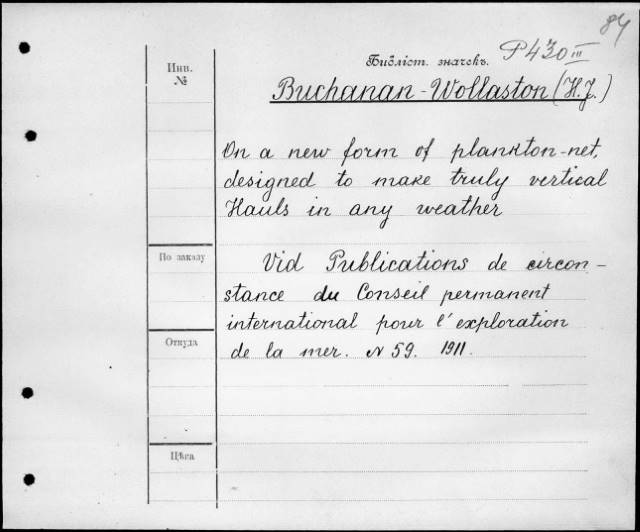 84
Библіот. значекъ. P430 III
Инв.
№
Buchanan-Wollaston (H.J.)
On a new form of plankton-net,
designed to make truly vertical
Hauls in any weather
По заказу
Vid Publications de circon-
stance du Conseil permanent
international pour l'exploration
Откуда
de la mer. N 59. 1911.
Цѣна